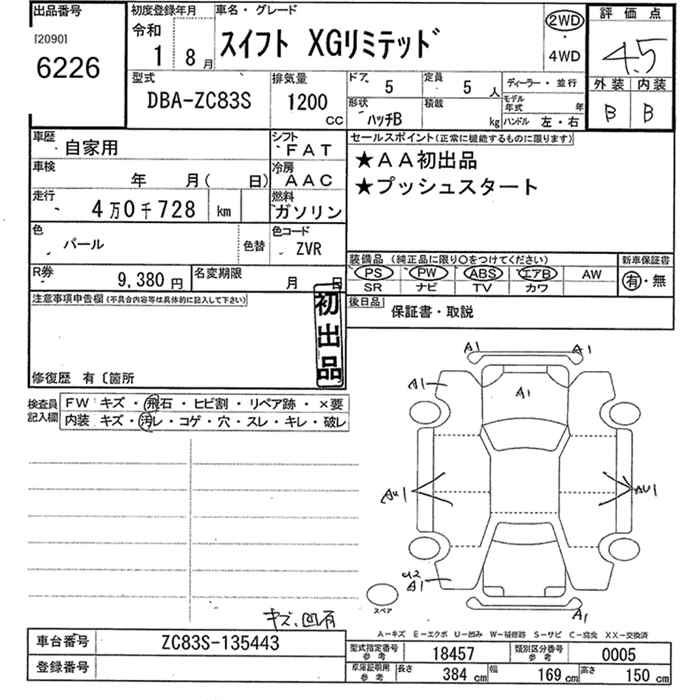 出品番号
[2090]
6226
初度登録年月
令和
1 8月
車名・グレード
スイフト XGリミテッド
2WD
・
4WD
評価点
4.5
外装 内装
B B
型式
DBA-ZC83S
排気量
1200
CC
ドア
5
定員
5 人
形状
ハッチB
積載
kg
ディーラー・並行
モデル年式 年
ハンドル 左・右
車歴
自家用
シフト
FAT
車検
年 月( 日)
冷房
AAC
走行
4万0千728 km
燃料
ガソリン
色
パール
色替
色コード
ZVR
R券
9,380円
名変期限
月 日
セールスポイント(正常に機能するものに限ります)
★AA初出品
★プッシュスタート
装備品 (純正品に限り○をつけてください)
PS PW ABS エアB AW
SR ナビ TV カワ
新車保証書
有・無
後日品
保証書・取説
注意事項申告欄(不具合内容等は具体的に記入して下さい)
初出品
修復歴 有〔箇所
検査員記入欄
FW キズ・飛石・ヒビ割・リペア跡・×要
内装 キズ・汚レ・コゲ・穴・スレ・キレ・破レ
A1 A1
A1
A1
AU1
AU1
U2
A1
A1
スペア
キズ、凹有
A-キズ E-エクボ U-凹み W-補修跡 S-サビ C-腐食 XX-交換済
車台番号
ZC83S-135443
登録番号
型式指定番号
参考
18457
類別区分番号
参考
0005
車庫証明用
参考
長さ
384 cm
幅
169 cm
高さ
150 cm